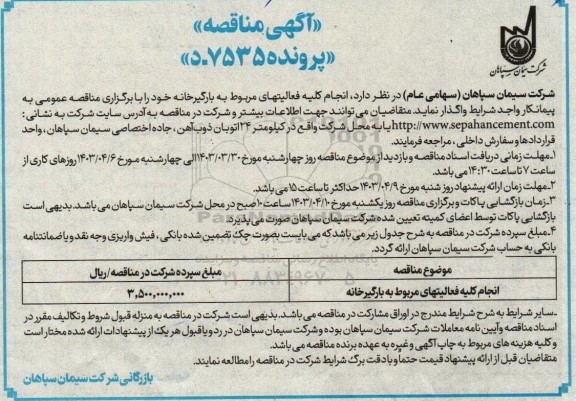 «آگهی مناقصه»
«پرونده ۷۵۳۵-د»
شرکت سیمان سپاهان
شرکت سیمان سپاهان (سهامی عام) در نظر دارد، انجام کلیه فعالیتهای مربوط به بارگیرخانه خود را با برگزاری مناقصه عمومی به
پیمانکار واجد شرایط واگذار نماید. متقاضیان می توانند جهت اطلاعات بیشتر و شرکت در مناقصه به آدرس سایت شرکت به نشانی:
http://www.sepahancement.com و یا به محل شرکت واقع در کیلومتر ۲۴ اتوبان ذوب آهن، جاده اختصاصی سیمان سپاهان، واحد
قراردادها و سفارش داخلی، مراجعه فرمایند.
۱ـ مهلت زمانی دریافت اسناد مناقصه و بازدید از موضوع مناقصه روز چهارشنبه مورخ ۱۴۰۳/۰۳/۳۰ الی چهارشنبه مورخ ۱۴۰۳/۰۴/۶ روزهای کاری از
ساعت ۷ تا ساعت ۱۴:۳۰ می باشد.
۲ـ مهلت زمان ارائه پیشنهاد روز شنبه مورخ ۱۴۰۳/۰۴/۹ حداکثر تا ساعت ۱۵ می باشد.
۳ـ زمان بازگشایی پاکات و برگزاری مناقصه روز یکشنبه مورخ ۱۴۰۳/۰۴/۱۰ ساعت ۱۰ صبح در محل شرکت سیمان سپاهان می باشد. بدیهی است
بازگشایی پاکات توسط اعضای کمیته تعیین شده شرکت سیمان سپاهان صورت می پذیرد.
۴ـ مبلغ سپرده شرکت در مناقصه به شرح جدول زیر می باشد که می بایست بصورت چک تضمین شده بانکی، فیش واریزی وجه نقد و یا ضمانتنامه
بانکی به حساب شرکت سیمان سپاهان ارائه گردد.
موضوع مناقصه مبلغ سپرده شرکت در مناقصه/ریال
انجام کلیه فعالیتهای مربوط به بارگیرخانه ۳,۵۰۰,۰۰۰,۰۰۰
ـ سایر شرایط به شرح شرایط مندرج در اوراق مشارکت در مناقصه می باشد. بدیهی است شرکت در مناقصه به منزله قبول شروط و تکالیف مقرر در
اسناد مناقصه و آیین نامه معاملات شرکت سیمان سپاهان بوده و شرکت سیمان سپاهان در رد و یا قبول هر یک از پیشنهادات ارائه شده مختار است
و کلیه هزینه های مربوط به چاپ آگهی و غیره به عهده برنده مناقصه می باشد.
متقاضیان قبل از ارائه پیشنهاد قیمت حتما و با دقت برگ شرایط شرکت در مناقصه را مطالعه نمایند.
بازرگانی شرکت سیمان سپاهان